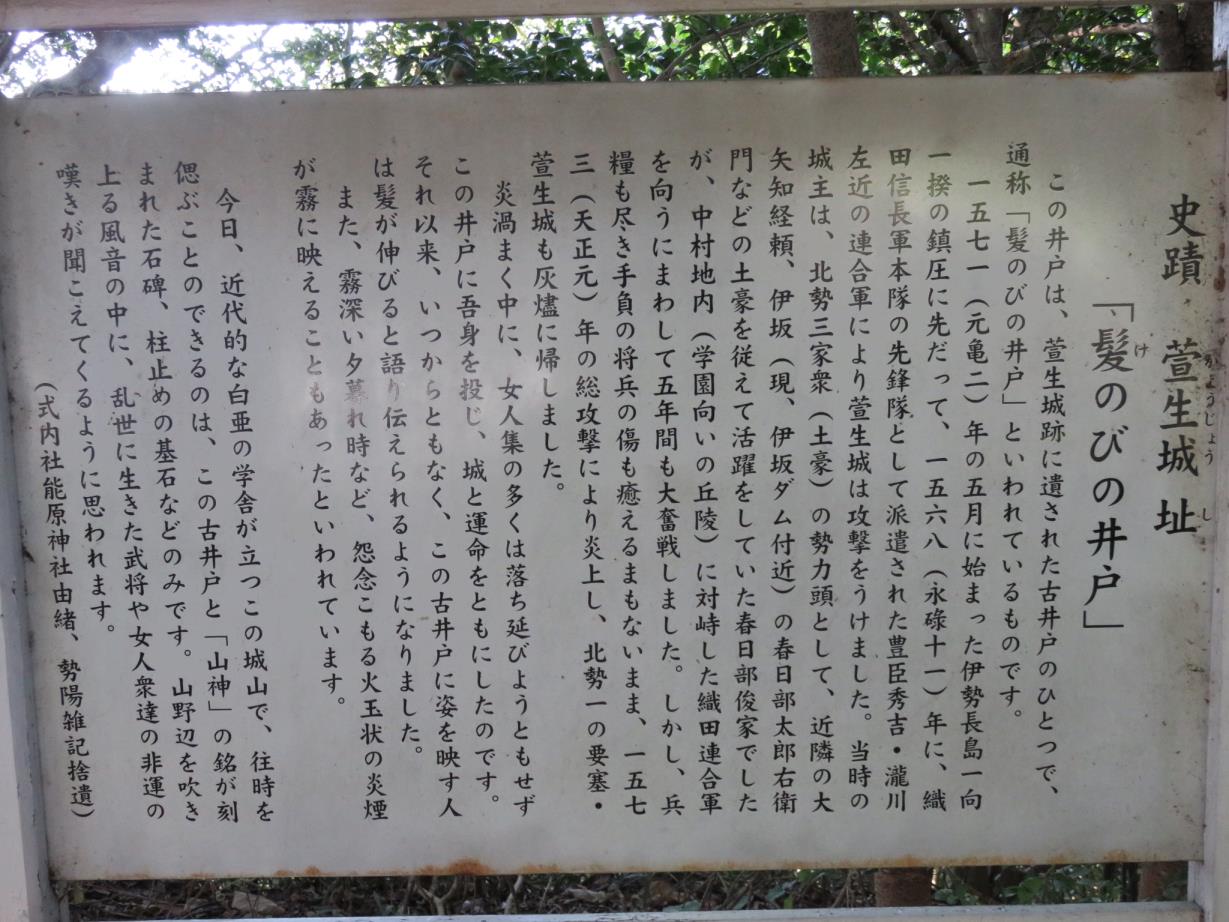 史蹟 萱生城址
かようじょうし
「髪のびの井戸」
け
この井戸は、萱生城跡に遺された古井戸のひとつで、
通称「髪のびの井戸」といわれているものです。
一五七一（元亀二）年の五月に始まった伊勢長島一向
一揆の鎮圧に先だって、一五六八（永碌十一）年に、織
田信長軍本隊の先鋒隊として派遣された豊臣秀吉・瀧川
左近の連合軍により萱生城は攻撃をうけました。当時の
城主は、北勢三家衆（土豪）の勢力頭として、近隣の大
矢知経頼、伊坂（現、伊坂ダム付近）の春日部太郎右衛
門などの土豪を従えて活躍をしていた春日部俊家でした
が、中村地内（学園向いの丘陵）に対峙した織田連合軍
を向うにまわして五年間も大奮戦しました。しかし、兵
糧も尽き手負の将兵の傷も癒えるまもないまま、一五七
三（天正元）年の総攻撃により炎上し、北勢一の要塞・
萱生城も灰燼に帰しました。
炎渦まく中に、女人集の多くは落ち延びようともせず
この井戸に吾身を投じ、城と運命をともにしたのです。
それ以来、いつからともなく、この古井戸に姿を映す人
は髪が伸びると語り伝えられるようになりました。
また、霧深い夕暮れ時など、怨念こもる火玉状の炎煙
が霧に映えることもあったといわれています。
今日、近代的な白亜の学舎が立つこの城山で、往時を
偲ぶことのできるのは、この古井戸と「山神」の銘が刻
まれた石碑、柱止めの基石などのみです。山野辺を吹き
上る風音の中に、乱世に生きた武将や女人衆達の非運の
嘆きが聞こえてくるように思われます。
（式内社能原神社由緒、勢陽雑記捨遺）